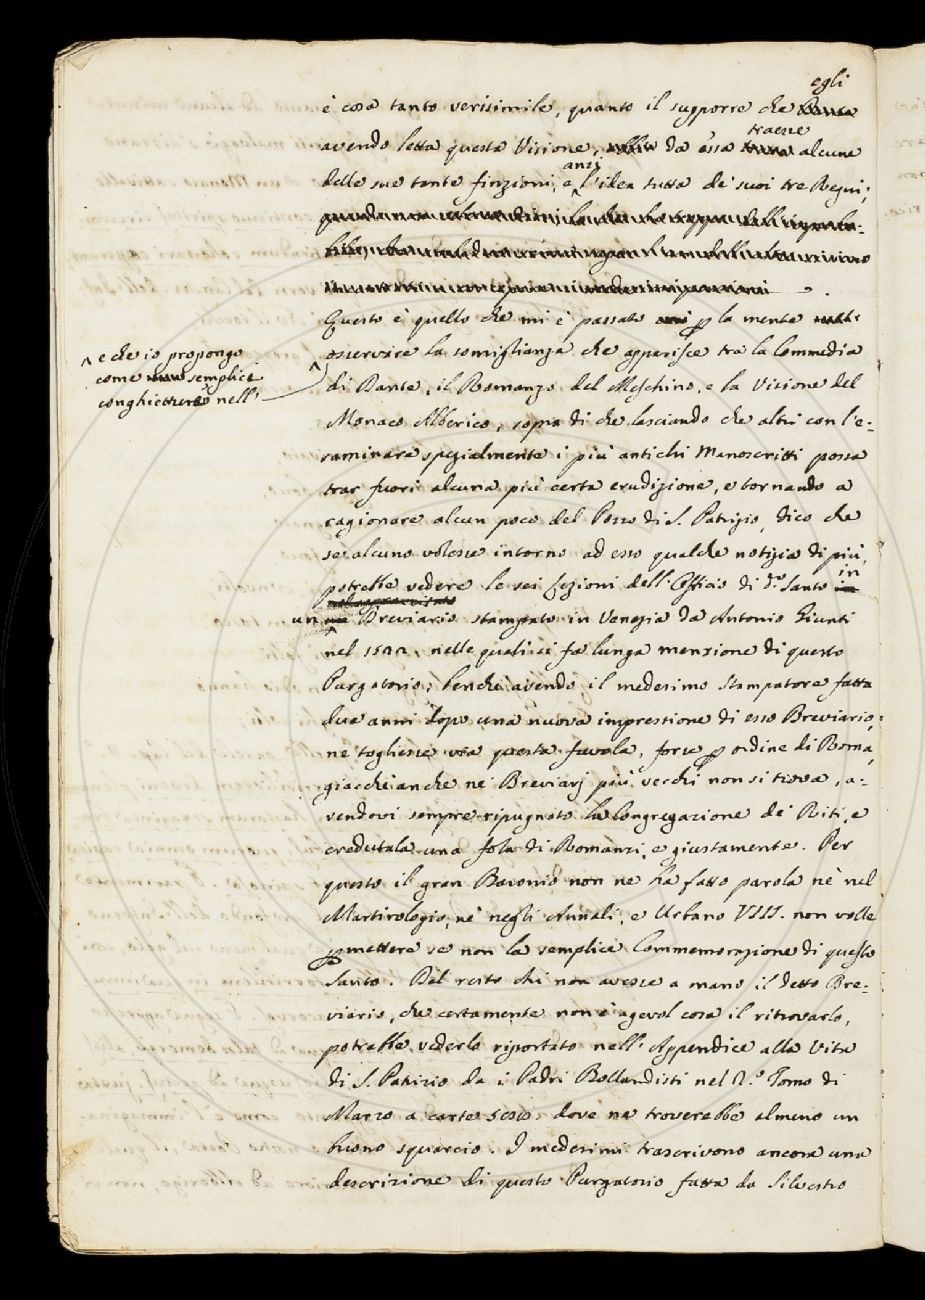 egli
è cosa tanto verisimile, quanto il supporre che Dante
traesse
avendo letta questa Visione, da essa alcune
anzi
delle sue tante finzioni, e l'idea tutta de' suoi tre Regni;
Questo è quello che mi è passato p la mente
e che io propongo
come semplici
conghietture nell'
osservare la somiglianza che apparisce tra la Commedia
di Dante, il Romanzo del Meschino, e la Visione del
Monaco Alberico, sopra di che lasciando che altri con l'e-
saminare spezialmente i più antichi Manoscritti possa
trar fuori alcuna più certa erudizione, e tornando a
ragionare alcun poco del Pozzo di S. Patrizio, dico che
se alcuno volesse intorno ad esso qualche notizia di più,
in
potrebbe vedere le sei Lezioni dell'Offizio di d.o Santo
un Breviario stampato in Venezia da Antonio Giunti
nel nelle quali si fa lunga menzione di questo
Purgatorio; benchè avendo il medesimo Stampatore fatta
due anni dopo una nuova impressione di esso Breviario,
ne togliesse via questa favola, forse p ordine di Roma,
giacchè anche ne' Breviarj più vecchi non si trova, a-
vendovi sempre ripugnato la Congregazione de' Riti, e
credutala una fola di Romanzi, e giustamente. Per
questo il gran Baronio non ne ha fatto parola nè nel
Martirologio, nè negli Annali, e Urbano VIII. non volle
pmettere se non la semplice Commemorazione di questo
Santo. Del resto chi non avesse a mano il detto Bre-
viario, che certamente non è agevol cosa il ritrovarlo,
potrebbe vederlo riportato nell'Appendice alla Vita
di S. Patrizio da i Padri Bollandisti nel 2.o Tomo di
Marzo a carte dove ne troverebbe almeno un
buono squarcio. I medesimi trascrivono ancora una
descrizione di questo Purgatorio fatta da Silvestro